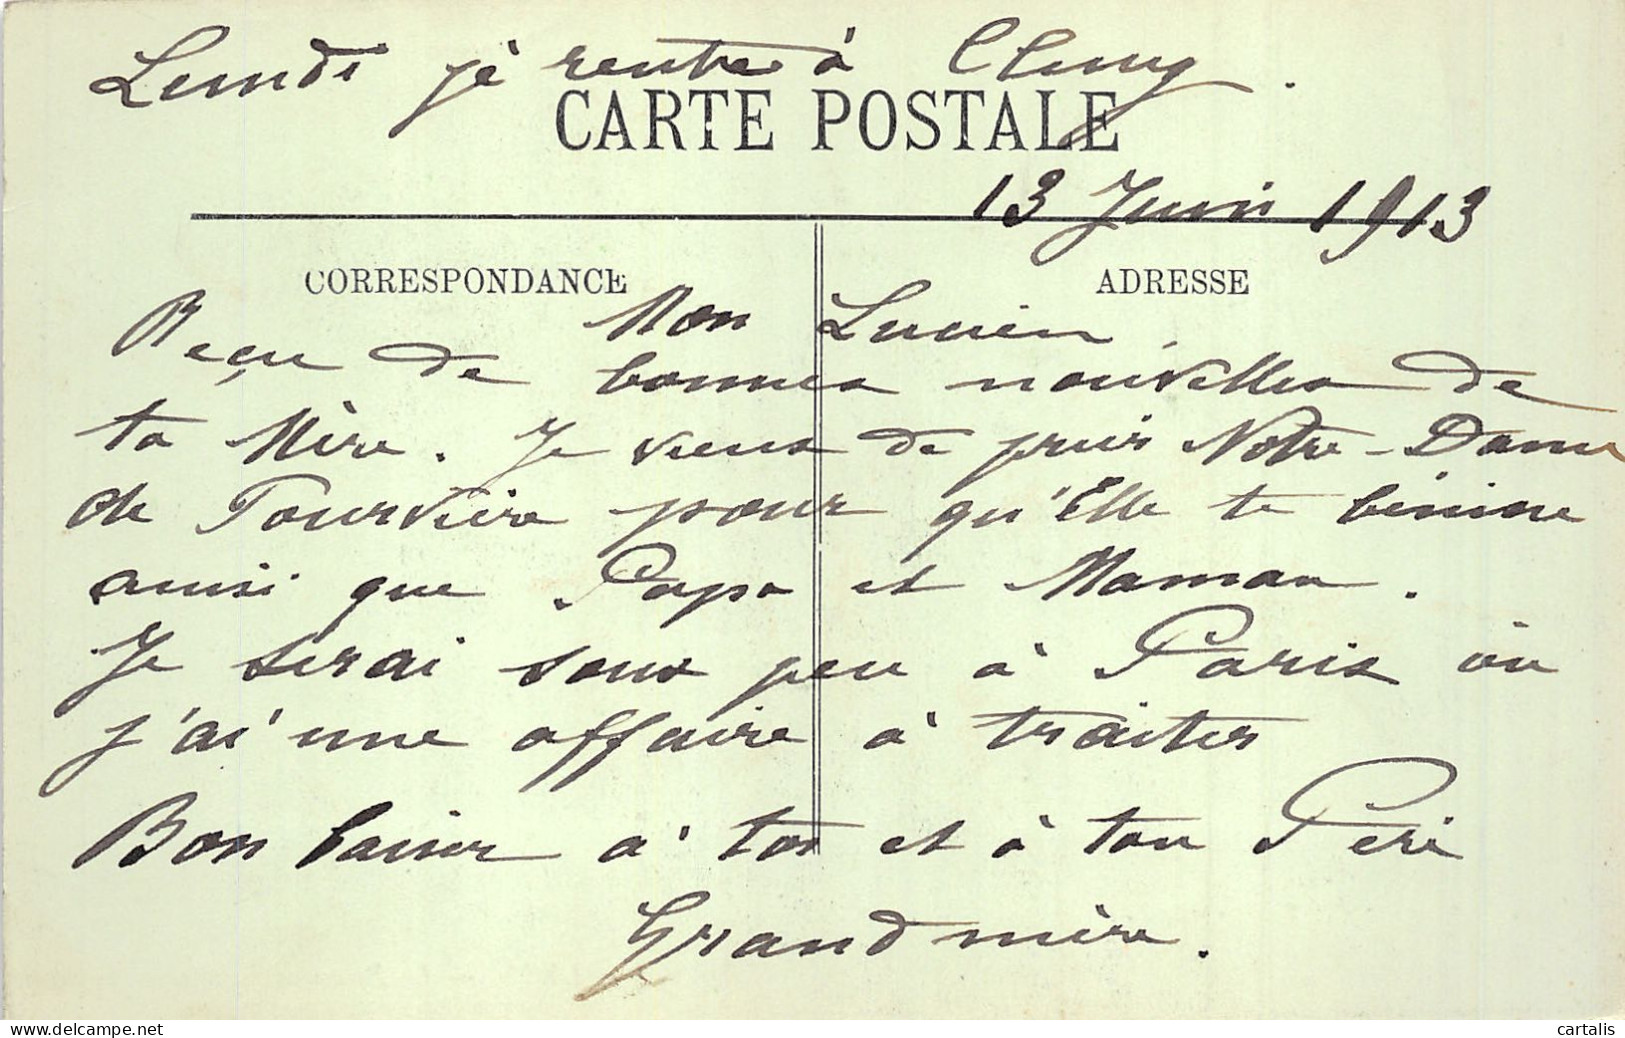 Lundi je rentre à Cluny.
CARTE POSTALE
13 Juin 1913
CORRESPONDANCE
ADRESSE
Mon Lucien,
Reçu de bonnes nouvelles de
ta Mère. Je viens de prier Notre-Dame
de Fourvière pour qu'Elle te bénisse
ainsi que Papa et Maman.
Je serai sous peu à Paris où
j'ai une affaire à traiter
Bon baiser à toi et à ton Père
Grandmère.
cartalis